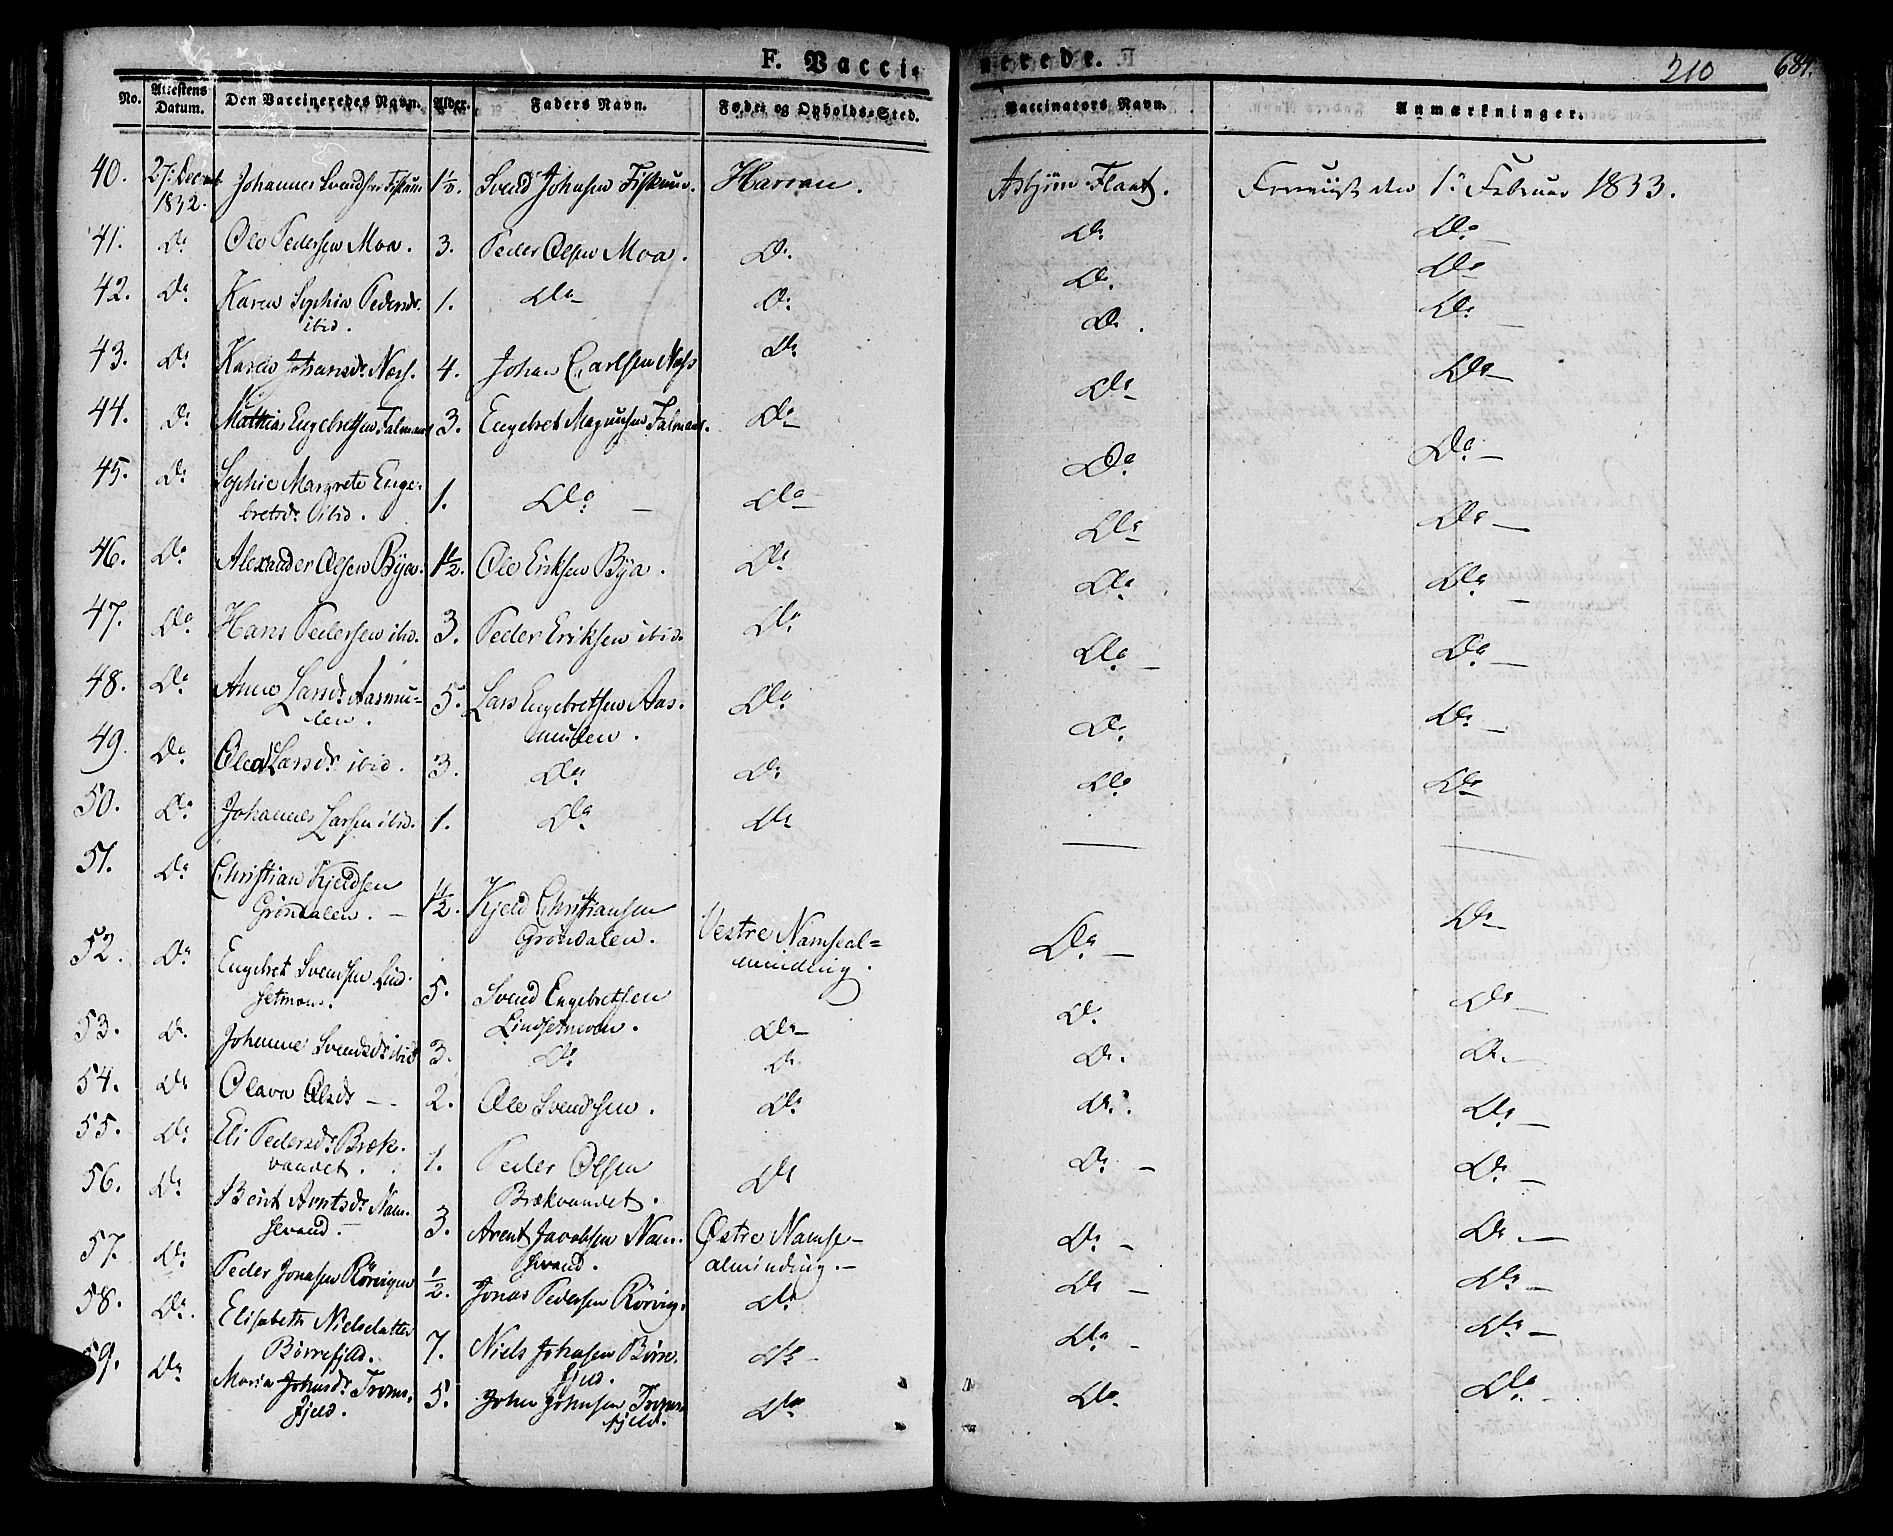 F. Vacci-
nerede.
210
684.
No.
Attestens Datum.
Den Vaccineredes Navn.
Alder.
Faders Navn.
Føde- og Opholds-Sted.
Vaccinators Navn.
Anmærkninger.
40. 27. Decemb. 1832. Johannes Svendsen Fiskum 1½. Svend Johnsen Fiskum. Harran. Asbjörn Flaat. den 1. Februar 1833.
41. Do Ole Pedersen Moa. 3. Peder Olsen Moa. Do. Do. Do.
42. Do Karen Sophia Pedersdr.
ibid. 1. Do Do. Do. Do
43. Do Karen Johansdr. Næss. 4. Johan Carlsen Næss Do Do. Do.
44. Do Mathias Engebretsen Falmaas 3. Engebret Magnussen Falmaas. Do Do Do
45. Do Sophie Margrete Enge-
bretsdr. ibid. 1. Do Do Do Do
46. Do Alexander Olsen Bÿa. 1½. Ole Eriksen Bÿa. Do Do Do
47. Do Hans Pedersen ibid. 3. Peder Eriksen ibid. Do Do Do
48. Do Anne Larsdr. Aasmu-
len. 5. Lars Engebretsen Aas-
mulen. Do Do Do
49. Do Olea Larsdr. ibid. 3. Do Do Do Do
50. Do Johannes Larsen ibid. 1. Do Do Do Do
51. Do Christian Kjeldsen
Gröndalen. 1½. Kjeld Christiansen
Gröndalen. Vestre Namseal=
minding. Do Do
52. Do Engebret Svendsen Lind-
setmoen. 5. Svend Engebretsen
Lindsetmoen. Do Do Do
53. Do Johanne Svendsdr. ibid 3. Do Do Do Do
54. Do Olava Olsdr. 2. Ole Svendsen. Do Do Do
55. Do Eli Pedersdr. Bræk-
vandet. 1. Peder Olsen
Brækvandet. Do Do Do
56. Do Berit Arntsdr. Nam-
sevand. 3. Arent Jacobsen Nam-
sevand. Østre Namse-
alminding. Do Do
57. Do Peder Jonasen Rörvigen ½. Jonas Pedersen Rörvig. Do Do Do
58. Do. Elisabeth Nielsdatter
Börrefjeld. 7. Niels Johnsen Börre-
fjeld. Do Do Do
59. Do Maria Johnsdr. Troms-
fjeld. 5. John Johnsen Troms-
fjeld. Do Do. Do